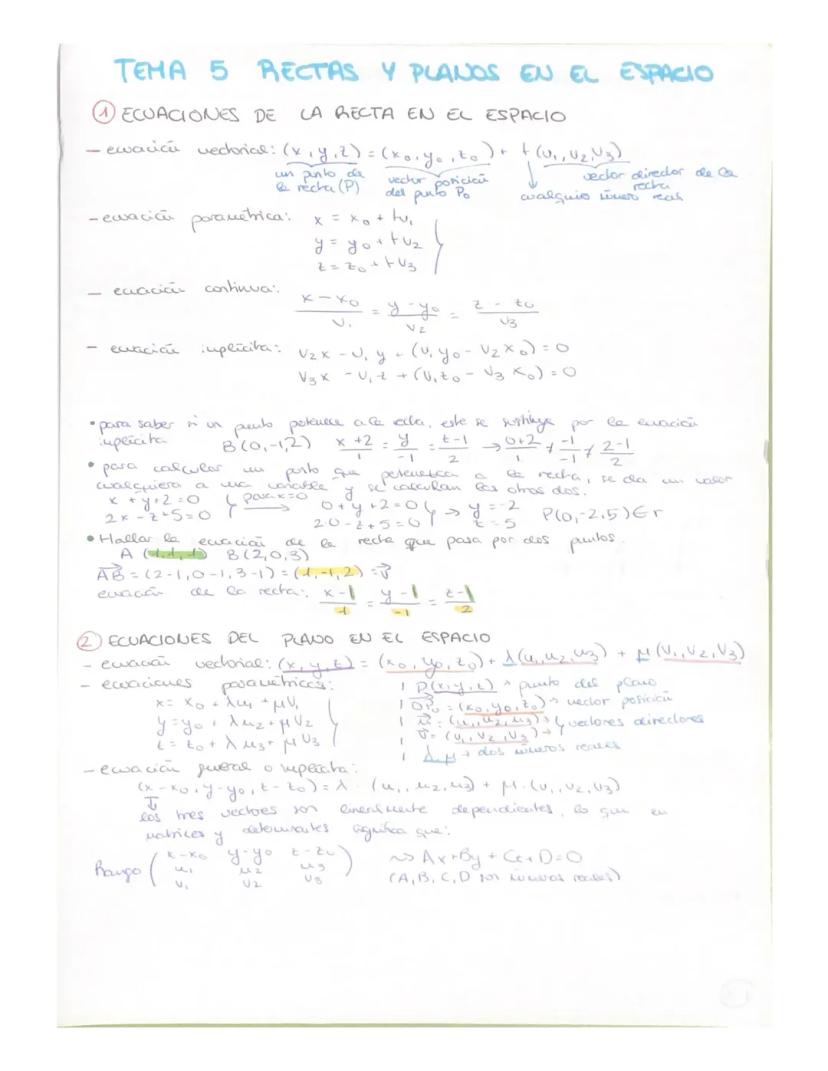 TEMA 5 RECTAS Y PLANOS EN EL ESPACIO
① ECUACIONES DE LA RECTA EN EL ESPACIO
- ecuación vectorial: (x, y, z) = (x₀, y₀, z₀) + t (v₁, v₂, v₃)
un punto de la recta (P)
vector posición del punto P₀
cualquier número real
vector director de la recta
- ecuación paramétrica: x = x₀ + tv₁
y = y₀ + tv₂
z = z₀ + tv₃
- ecuación continua: (x - x₀)/v₁ = (y - y₀)/v₂ = (z - z₀)/v₃
- ecuación implícita: v₂x - v₁y + (v₁y₀ - v₂x₀) = 0
v₃x - v₁z + (v₁z₀ - v₃x₀) = 0
• para saber si un punto pertenece a la ella, este se sustituye por la ecuación
implícita B(0,-1,2) (x+2)/1 = y/-1 = (z-1)/2 → (0+2)/1 ≠ -1/-1 ≠ (2-1)/2
• para calcular un punto que pertenezca a la recta, se da un valor
cualquiera a una variable y se calculan los otros dos.
x + y + 2 = 0 para x=0 0 + y + 2 = 0 → y = -2
2x - z + 5 = 0 2·0 - z + 5 = 0 z = 5 P(0,-2,5) ∈ r
• Hallar la ecuación de la recta que pasa por dos puntos.
A (1,1,1) B(2,0,3)
AB⃗ = (2-1, 0-1, 3-1) = (1,-1,2) = v⃗
ecuación de la recta: (x-1)/1 = (y-1)/-1 = (z-1)/2
② ECUACIONES DEL PLANO EN EL ESPACIO
- ecuación vectorial: (x, y, z) = (x₀, y₀, z₀) + λ(u₁, u₂, u₃) + μ(v₁, v₂, v₃)
- ecuaciones paramétricas:
x = x₀ + λu₁ + μv₁
y = y₀ + λu₂ + μv₂
z = z₀ + λu₃ + μv₃
P(x, y, z) → punto del plano
OP₀⃗ = (x₀, y₀, z₀) → vector posición
u⃗ = (u₁, u₂, u₃) →
v⃗ = (v₁, v₂, v₃) → vectores directores
λ, μ → dos números reales
- ecuación general o implícita:
(x - x₀, y - y₀, z - z₀) = λ · (u₁, u₂, u₃) + μ · (v₁, v₂, v₃)
los tres vectores son linealmente dependientes, lo que en
matrices y determinantes significa que:
Rango ( x-x₀ y-y₀ z-z₀ ) ⇝ Ax + By + Cz + D = 0
u₁ u₂ u₃ (A, B, C, D son números reales)
v₁ v₂ v₃